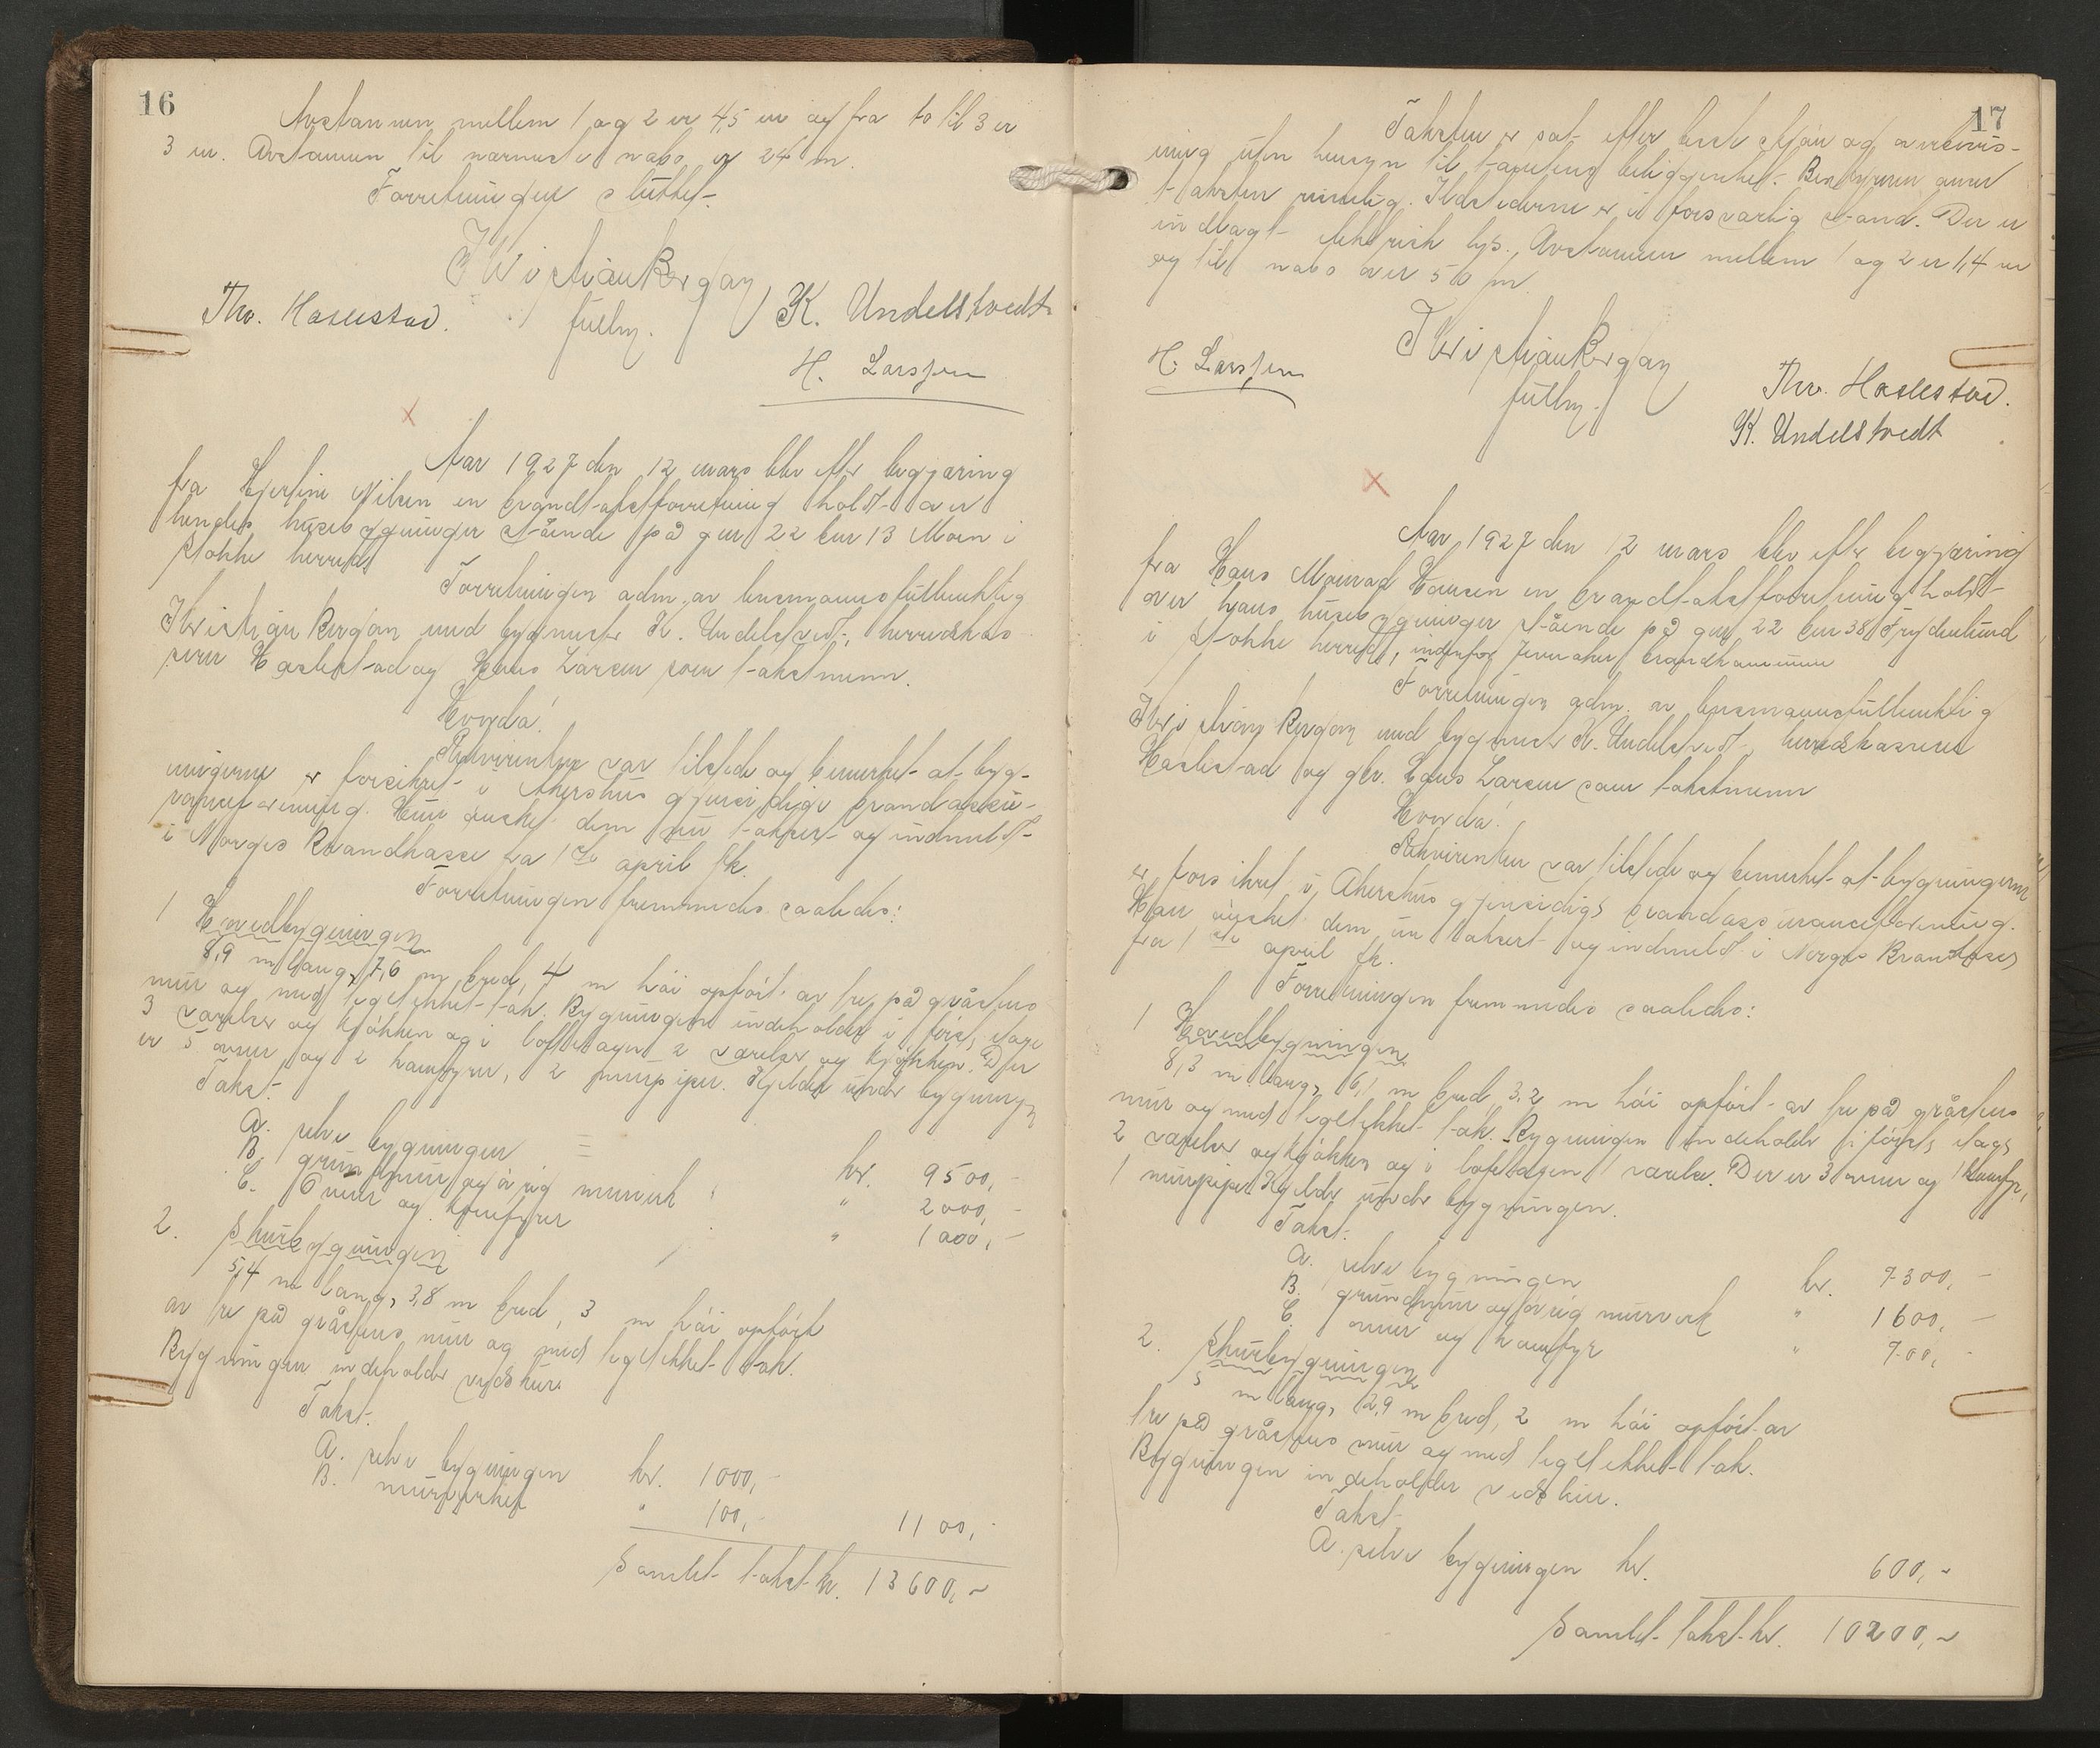 16
Avstannen mellem 1 og 2 er 4,5 m og fra to til 3 er
3 m. Avstannen til nærmeste nabo er 24 m.
Forretningen sluttet.
Kristian Bergan
fullm.
Thv. Haslestad.
K. Undelstvedt
H. Larssen
Aar 1927 den 12 mars blev efter begjæring
fra Hjerfine Nilsen en brandtakstforretning holdt over
hendes husebygninger stående på gnr 22 bnr 13 Moen i
Stokke herred.
Forretningen adm. av lensmannsfullmektig
Kristian Bergan med bygmester K. Undelstvedt, herredskas-
serer Haslestad og Hans Larsen som takstmenn.
Hvorda!
Rekvirenten var tilstede og bemerket at byg-
ningerne er forsikret i Akershus gjensidige brandassu-
ranceforening. Hun ønsket dem nu taksert og indmeldt
i Norges Brandkasse fra 1ste april fk.
Forretningen fremmedes saaledes:
1 Hovedbygningen
8,9 m lang, 7,6 m bred, 4 m høi opført av tre på gråstens
mur og med teglstekket tak. Bygningen indeholder i første etage
3 værelser og kjøkken og i loftetagen 2 værelser og kjøkken. Der
er 5 ovner og 2 komfyrer, 2 murpiper. Kjelder under bygningen
Takst.
A. selve bygningen kr. 9500,-
B. grunnmur og øvrig murverk " 2000,-
C. Ovner og komfyrer " 1000,-
2. Skurbygningen
5,4 m lang, 3,8 m bred, 3 m høi opført
av tre på gråstens mur og med teglstekket tak.
Bygningen indeholder vedskur.
Takst.
A. selve bygningen kr. 1000,-
B. murverket " 100,- 1100,-
Samlet takst kr. 13600,-
17
Taksten er sat efter besk stfan og anvis-
ning uten hensyn til tomtens beliggenhet. Bestyreren anser
taksten rimelig. Ildstederne er i forsvarlig stand. Der er
indlagt elektrisk lys. Avstannen mellem 1 og 2 er 1,4 m
og til nabo over 50 m.
Kristian Bergan
fullm.
H. Larssen
Thv. Haslestad.
K. Undelstvedt
Aar 1927 den 12 mars blev efter begjæring
fra Hans Meinrad Hansen en brandtakstforretning holdt
over hans husebygninger stående på gnr. 22 bnr 38 Frydenlund
i Stokke herred, indenfor brandkommune
Forretningen adm. av lensmannsfullmektig
Kristian Bergan med bygmester K. Undelstvedt, herredskasserer
Haslestad og gbr. Hans Larsen som takstmenn
Hvorda!
Rekvirenten var tilstede og bemerket at bygningerne
er forsikret i Akershus gjensidige brandassuranceforening.
Han ønsket dem nu taksert og indmeldt i Norges Brandkasse
fra 1ste april fk.
Forretningen fremmedes saaledes:
1 Hovedbygningen
8,3 m lang, 6,1 m bred, 3,2 m høi opført av tre på gråstens
mur og med teglstekket tak. Bygningen indeholder i første etage
2 værelser og kjøkken og i loftetagen 1 værelse. Der er 3 ovner og 1 komfyr,
1 murpipe. Kjelder under bygningen.
Takst.
A. selve bygningen kr. 7300,-
B. grundmur og øvrig murverk " 1600,-
C. ovner og komfyr " 700,-
2. Skurbygningen
5 m lang, 2,9 m bred, 2 m høi opført av
tre på gråstens mur og med teglstekket tak.
Bygningen indeholder vedskur.
Takst
A. selve bygningen kr. 600,-
Samlet takst kr. 10200,-